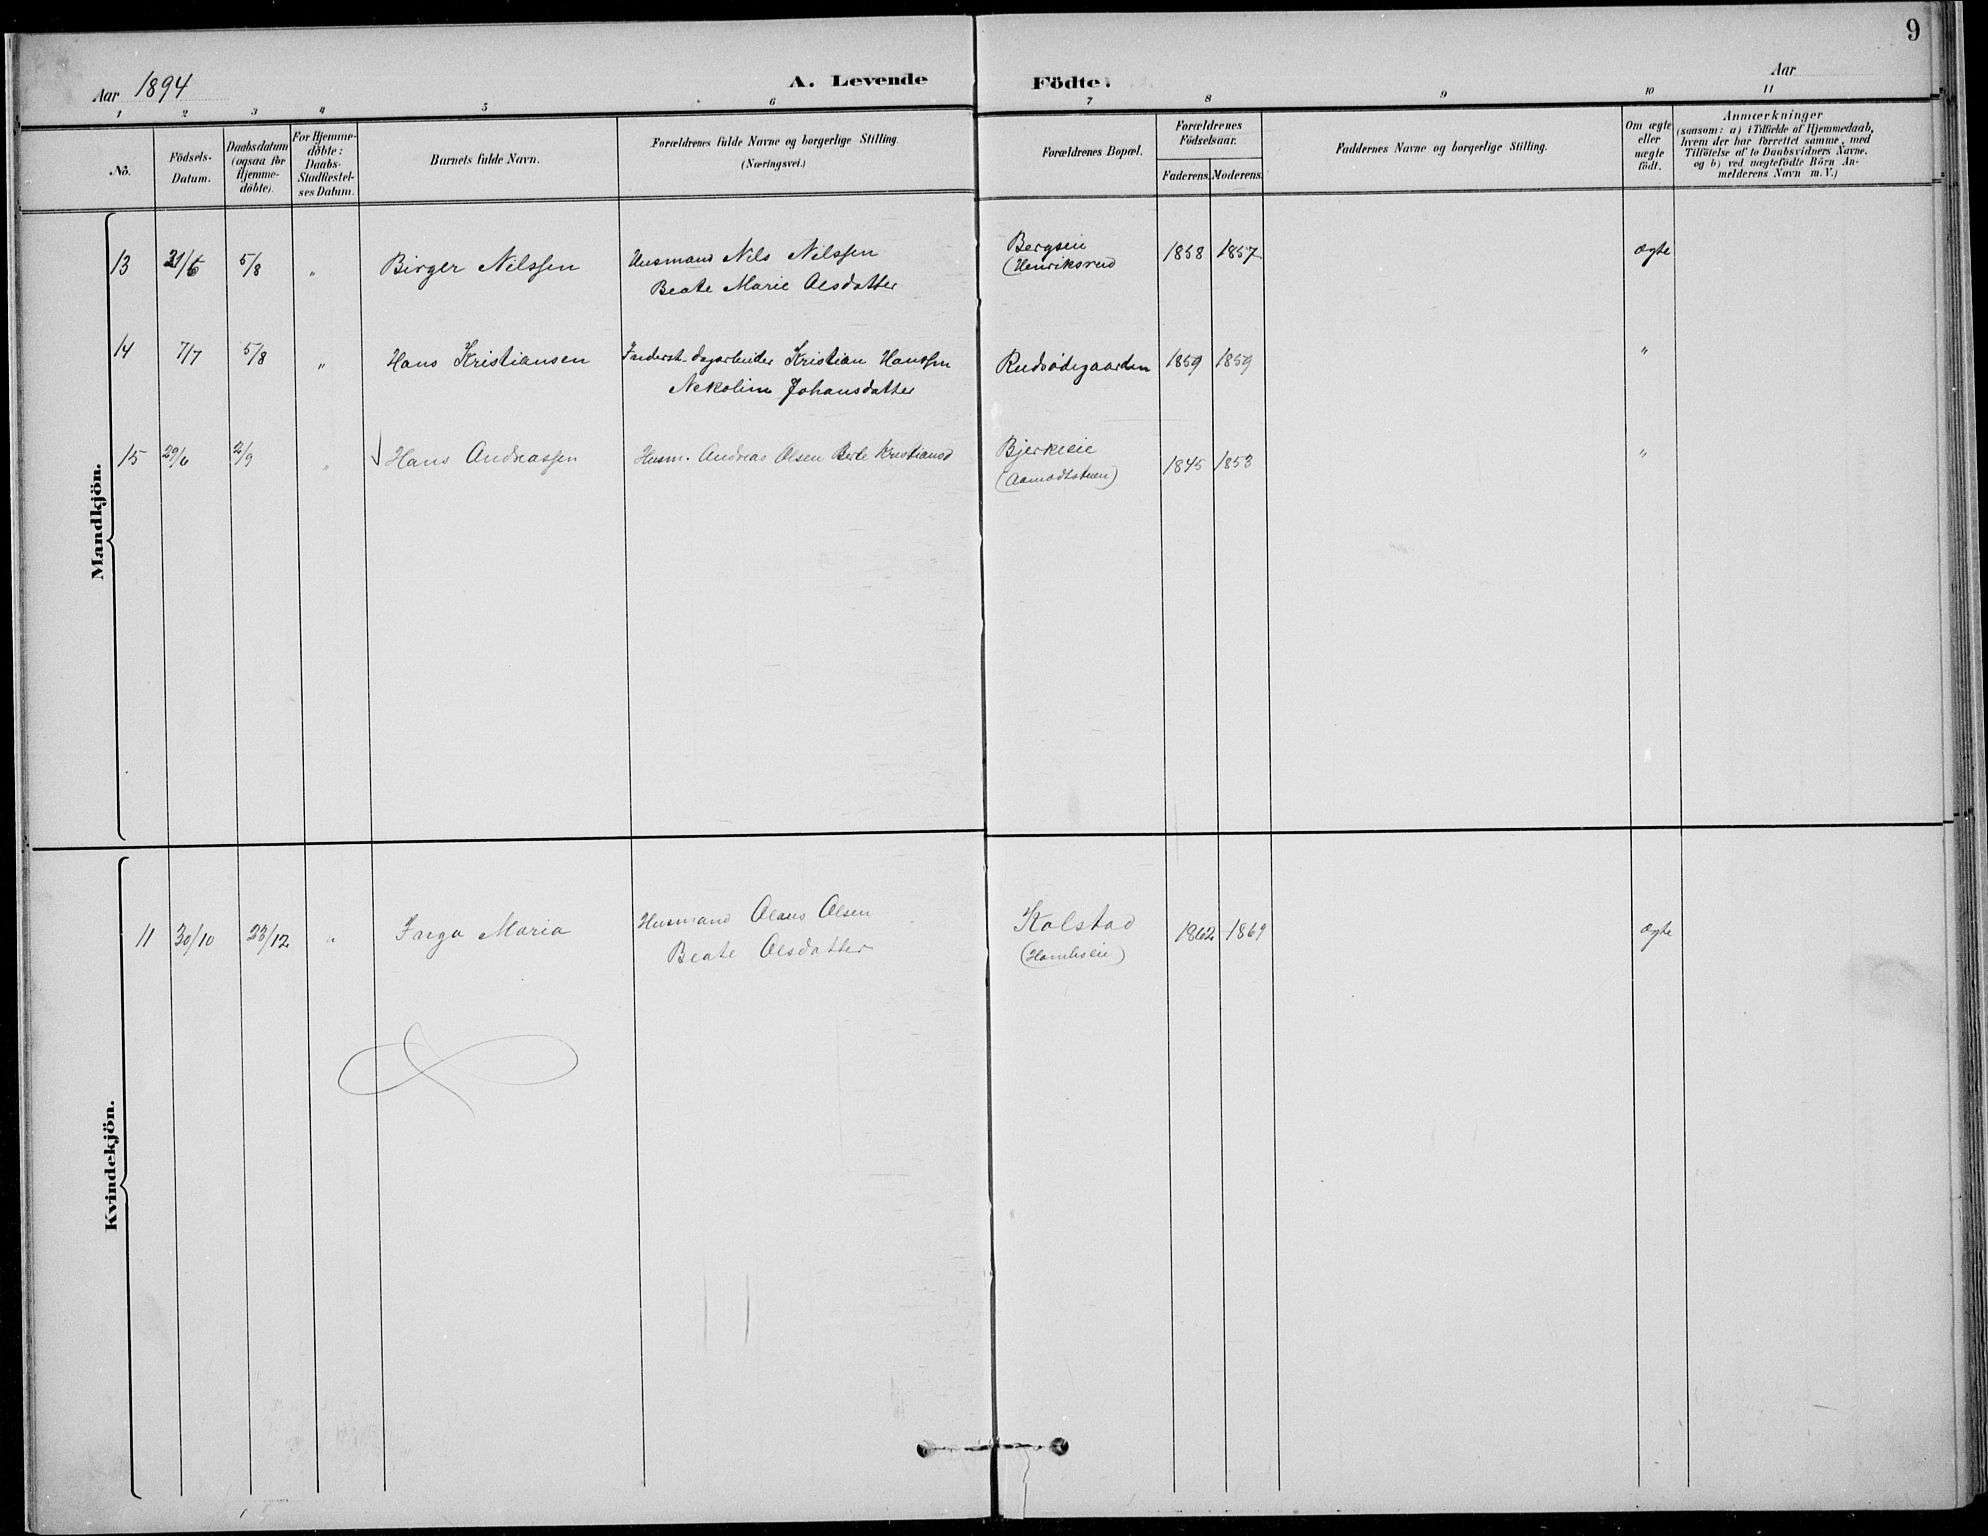 9
Aar 1894
A. Levende Födte.
Aar
1 2 3 4 5 6 7 8 9 10 11
No.
Födsels-Datum.
Daabsdatum (ogsaa för Hjemme-döbte).
For Hjemme-döbte: Daabs-Stadfæstel-ses Datum.
Barnets fulde Navn.
Forældrenes fulde Navne og borgerlige Stilling.
(Næringsvei.)
Forældrenes Bopæl.
Forældrenes Födselsaar.
Faderens. Moderens.
Faddernes Navne og borgerlige Stilling.
Om ægte eller uægte födt.
Anmærkninger
(saasom: a) i Tilfælde af Hjemmedaab,
hvem der har forrettet samme, med
Tilföielse af to Daabsvidners Navne,
og b) ved uægtefödte Börn An-
melderens Navn m. V.)
Mandkjön.
13 5/8 " Birger Nilssen Husmand Nils Nilssen Bergseie 1858 1857 ægte
Beate Marie Olsdatter (Henriksrud
14 7/7 5/8 " Hans Kristiansen Inderst-dagarbeider Kristian Hanssen Rudsødegaarden 1859 1859 "
Nekoline Johansdatter
15 29/6 2/9 " Hans Andreassen Husm. Andreas Olsen Berte Kristiansd Bjerkeeie 1845 1853 "
(Aamodtstuen)
Kvindekjön.
11 30/10 23/12 " Inga Maria Husmand Olaus Olsen Kolstad 1862 1869 ægte
Beate Olsdatter